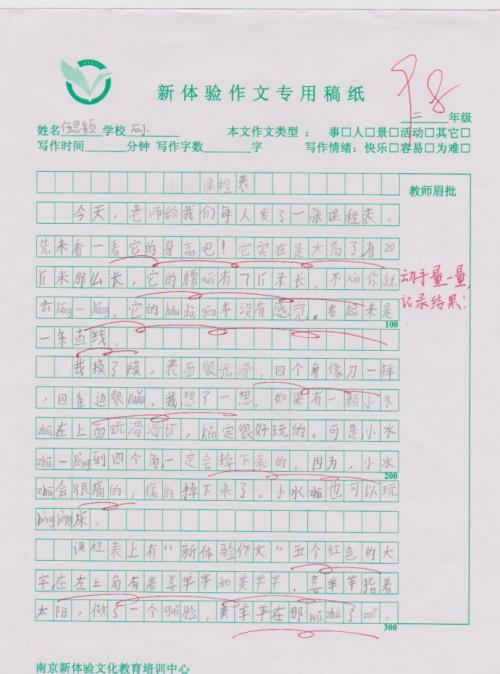 新体验作文专用稿纸
98
年级
姓名 思颖 学校 小 本文作文类型： 事□人□景□活动□其它□
写作时间 分钟 写作字数 字 写作情绪：快乐□容易□为难□
课程表
教师眉批
今天，老师给我们每人发了一张课程表。
先来看一看它的身高吧！它实在是太高了有20
厘米那么长，它的腰 有7厘米长，不xìn你就
去liáng一liáng。它的hòu dù gēn本没有感觉，看起来是
动手量一量，
记录结果！
100
一条直线。
我摸了摸，表面很光滑，四个角像刀一样
，四条边很 。我想了一想，如果有一颗小水
zhū在上面玩滑滑 ，kěn定很好玩的。可是，小水
zhū一 到四个角，一定会掉下来的。因为，小水
200
zhū会很痛的，痛的掉下来了。小水zhū也可以玩
 乐。
课程表上有“新体验作文”五个红色的大
字在左上角有着喜羊羊和美羊羊，喜羊羊指着
太阳，做了一个guǐ脸，美羊羊在那wǔ zhù了zuǐ，
300
南京新体验文化教育培训中心